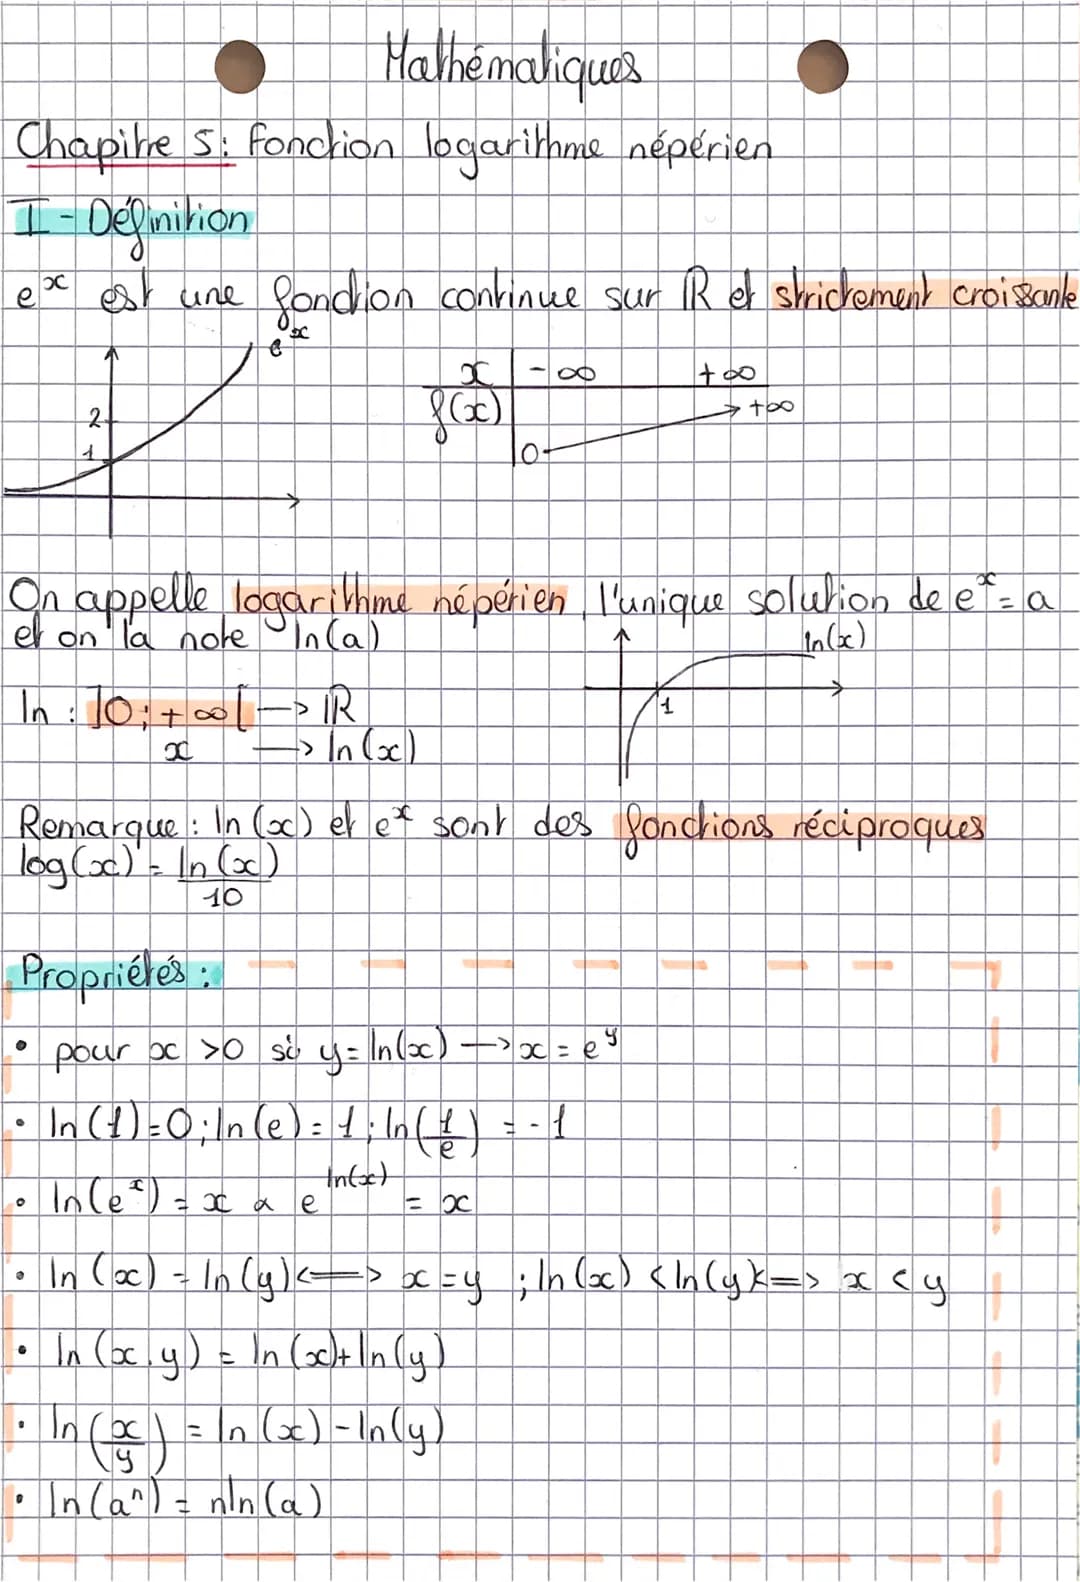 Mathématiques
Chapitre 5: fonction logarithme népérien
I - Définition
eˣ est une fonction continue sur ℝ et strictement croissante
eˣ
2
1
x | -∞ +∞
f(x) | 0 → +∞
On appelle logarithme népérien, l'unique solution de eˣ = a
et on la note ln(a)
ln(x)
1
ln : ]0; +∞[ → ℝ
x → ln(x)
Remarque : ln(x) et eˣ sont des fonctions réciproques
log(x) = ln(x)/10
Propriétés :
• pour x >0 si y = ln(x) → x = eʸ
• ln(1)=0; ln(e) = 1; ln(1/e) = -1
• ln(eˣ) = x & e^ln(x) = x
• ln(x) = ln(y) <=> x = y ; ln(x) < ln(y) <=> x < y
• ln(x.y) = ln(x)+ln(y)
• ln(x/y) = ln(x) - ln(y)
• ln(aⁿ) = nln(a)